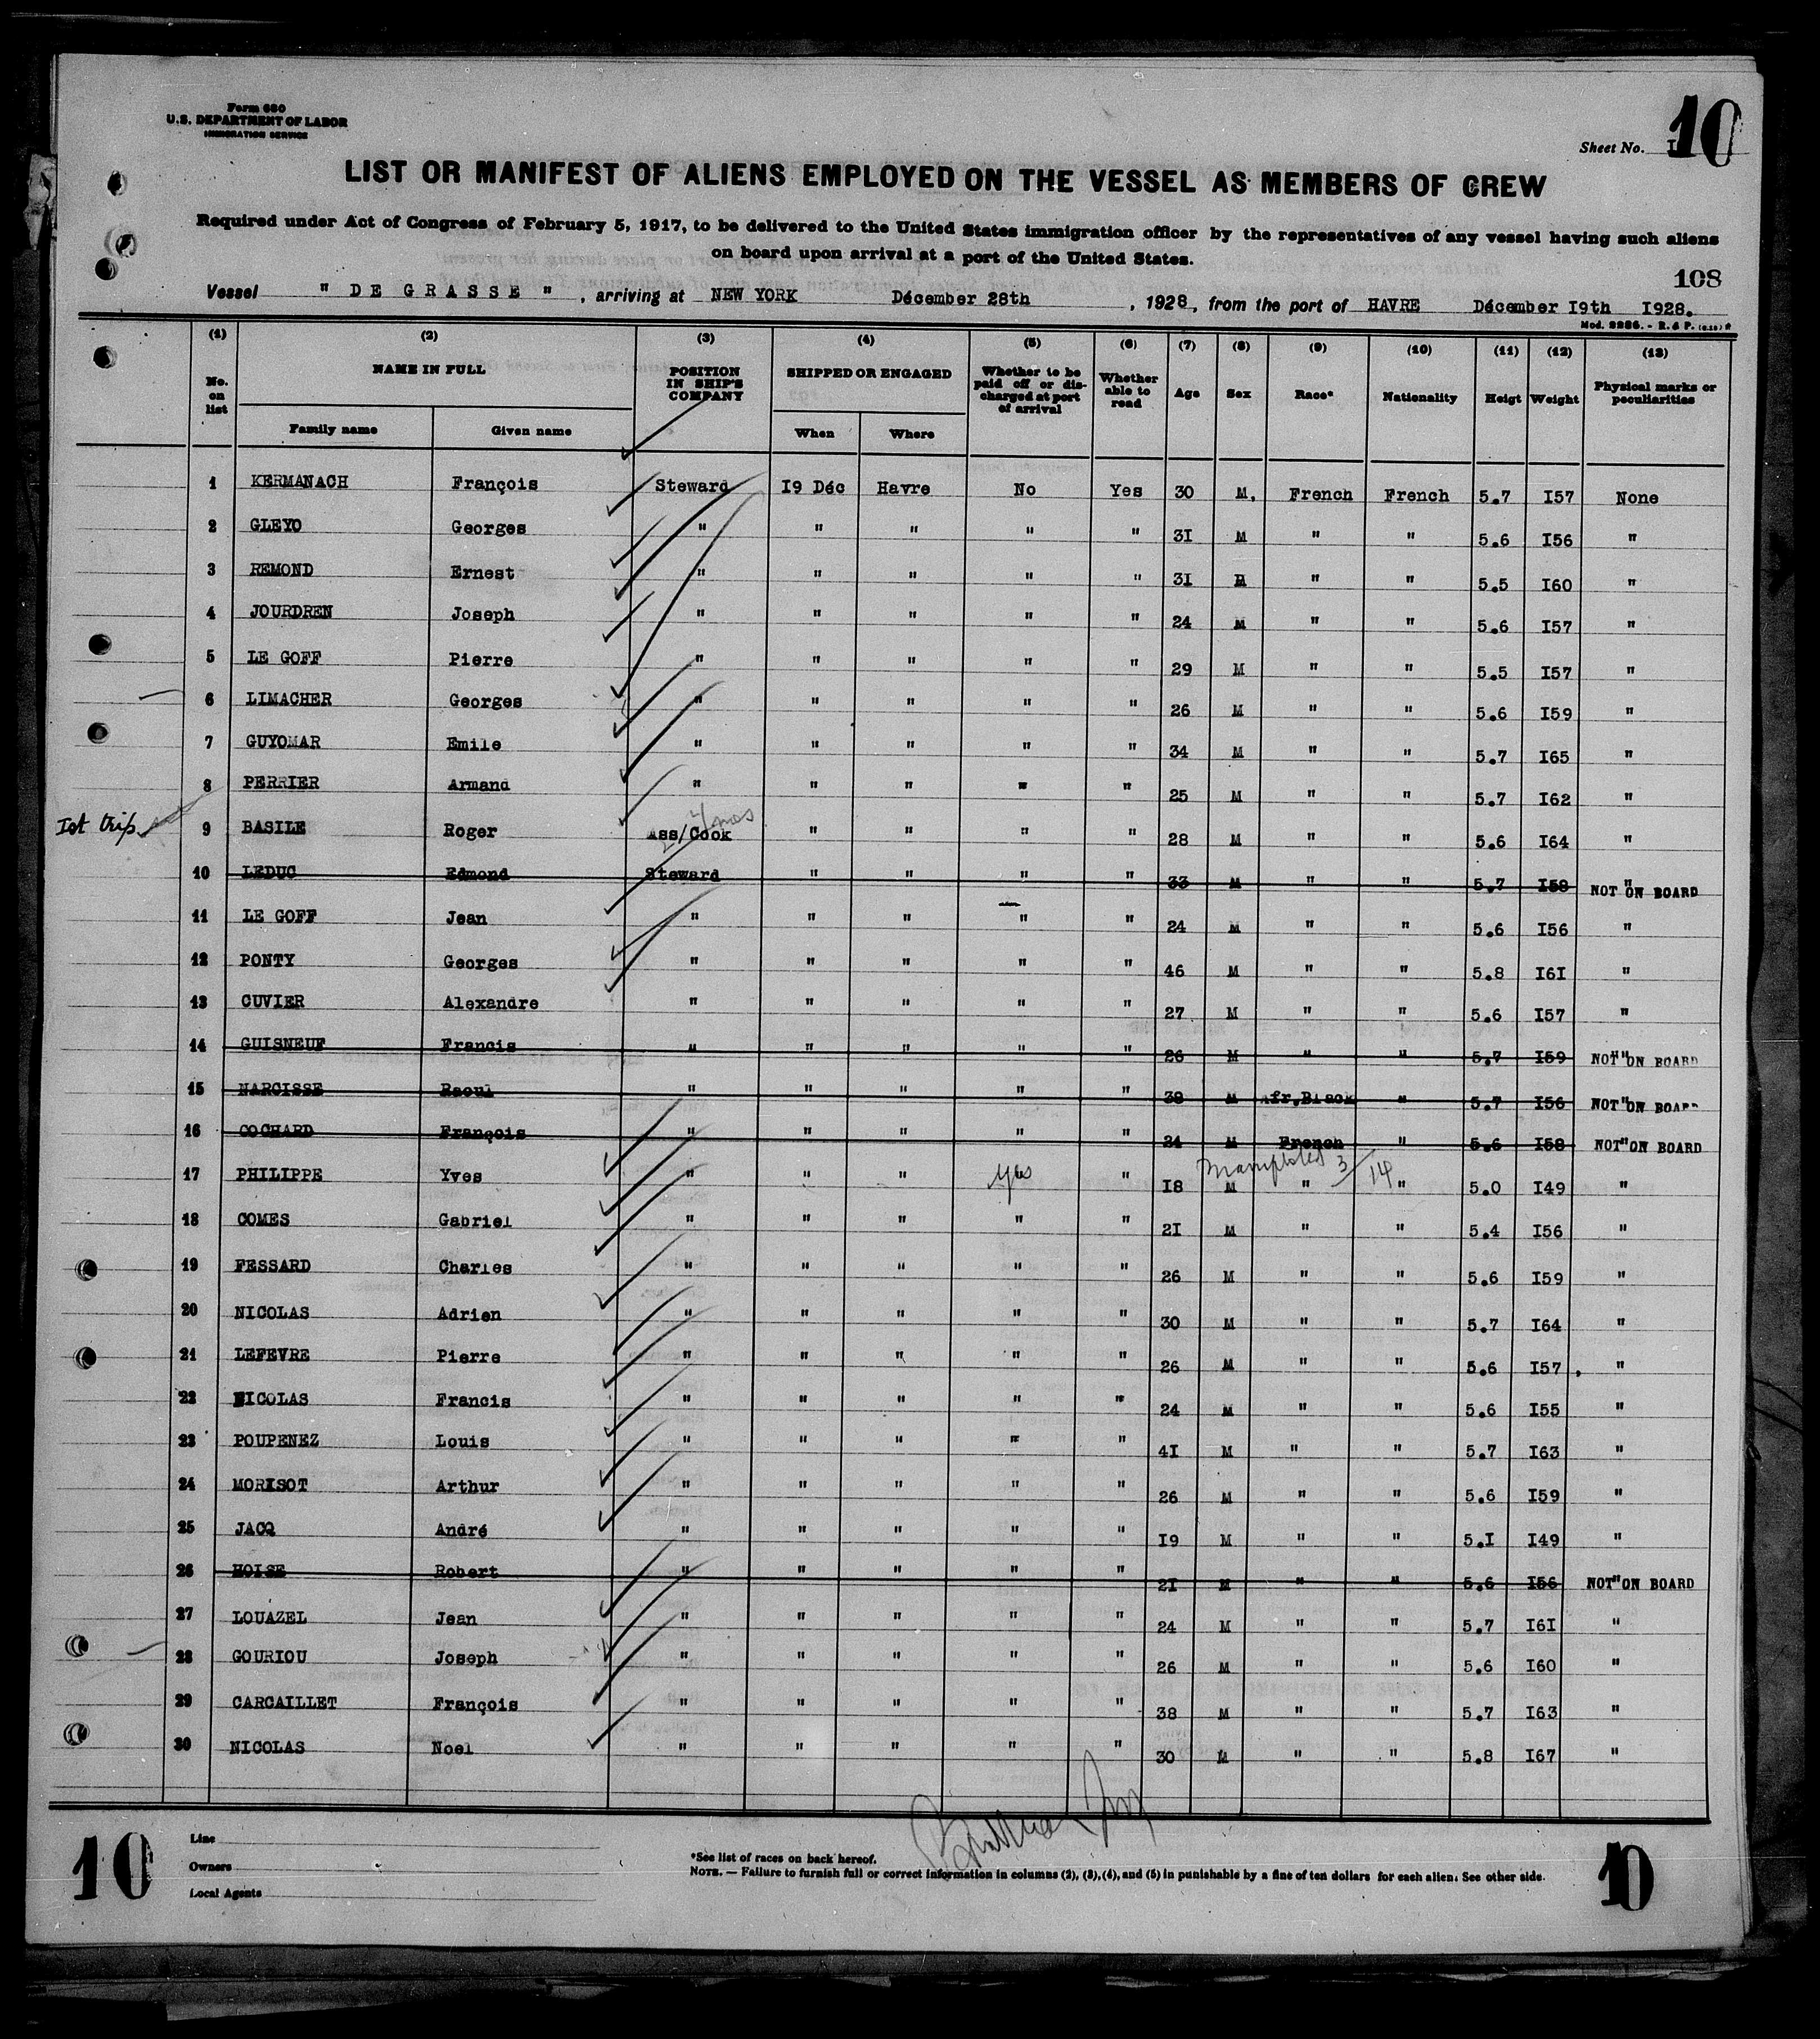 Form 680
U.S. DEPARTMENT OF LABOR
IMMIGRATION SERVICE
Sheet No. 10
LIST OR MANIFEST OF ALIENS EMPLOYED ON THE VESSEL AS MEMBERS OF CREW
Required under Act of Congress of February 5, 1917, to be delivered to the United States immigration officer by the representatives of any vessel having such aliens
on board upon arrival at a port of the United States.
108
Vessel " DE GRASSE " , arriving at NEW YORK Décember 28th , 1928, from the port of HAVRE Décember I9th I928.
Mod. 2286. - R. & P.
(1) (2) (3) (4) (5) (6) (7) (8) (9) (10) (11) (12) (13)
No. on list NAME IN FULL POSITION IN SHIP'S COMPANY SHIPPED OR ENGAGED Whether to be paid off or discharged at port of arrival Whether able to read Age Sex Race* Nationality Heigt Weight Physical marks or peculiarities
Family name Given name When Where
1 KERMANACH François Steward I9 Déc Havre No Yes 30 M. French French 5.7 I57 None
2 GLEYO Georges " " " " " 3I M " " 5.6 I56 "
3 REMOND Ernest " " " " " 3I " " 5.5 I60 "
4 JOURDREN Joseph " " " " " 24 M " " 5.6 I57 "
5 LE GOFF Pierre " " " " " 29 M " " 5.5 I57 "
6 LIMACHER Georges " " " " " 26 M " " 5.6 I59 "
7 GUYOMAR Emile " " " " " 34 M " " 5.7 I65 "
8 PERRIER Armand " " " " " 25 M " " 5.7 I62 "
Ist trip 9 BASILE Roger Ass/Cook 4 mos " " " " 28 M " " 5.6 I64 "
10 LEDUC Edmond Steward " " " " 33 M " " 5.7 I58 " NOT ON BOARD
11 LE GOFF Jean " " " " " 24 M " " 5.6 I56 "
12 PONTY Georges " " " " " 46 M " " 5.8 I6I "
13 CUVIER Alexandre " " " " " 27 M " " 5.6 I57 "
14 GUISNEUF Francis " " " " " 26 M " " 5.7 I59 " NOT ON BOARD
15 NARCISSE Raoul " " " " " 38 M Afr.Black " 5.7 I56 " NOT ON BOARD
16 COCHARD François " " " " " 24 M French " 5.6 I58 " NOT ON BOARD
17 PHILIPPE Yves " " " yes " I8 M " 3/14 " 5.0 I49 "
18 COMES Gabriel " " " " " 2I M " " 5.4 I56 "
19 FESSARD Charles " " " " " 26 M " " 5.6 I59 "
20 NICOLAS Adrien " " " " " 30 M " " 5.7 I64 "
21 LEFEVRE Pierre " " " " " 26 M " " 5.6 I57 "
22 NICOLAS Francis " " " " " 24 M " " 5.6 I55 "
23 POUPENEZ Louis " " " " " 4I M " " 5.7 I63 "
24 MORISOT Arthur " " " " " 26 M " " 5.6 I59 "
25 JACQ André " " " " " I9 M " " 5.I I49 "
26 HOISE Robert " " " " " 2I M " " 5.6 I56 " NOT ON BOARD
27 LOUAZEL Jean " " " " " 24 M " " 5.7 I6I "
28 GOURIOU Joseph " " " " " 26 M " " 5.6 I60 "
29 CARCAILLET François " " " " " 38 M " " 5.7 I63 "
30 NICOLAS Noel " " " " " 30 M " " 5.8 I67 "
10
Line
Owners
Local Agents
*See list of races on back hereof.
NOTE. — Failure to furnish full or correct information in columns (2), (3), (4), and (5) in punishable by a fine of ten dollars for each alien. See other side.
10